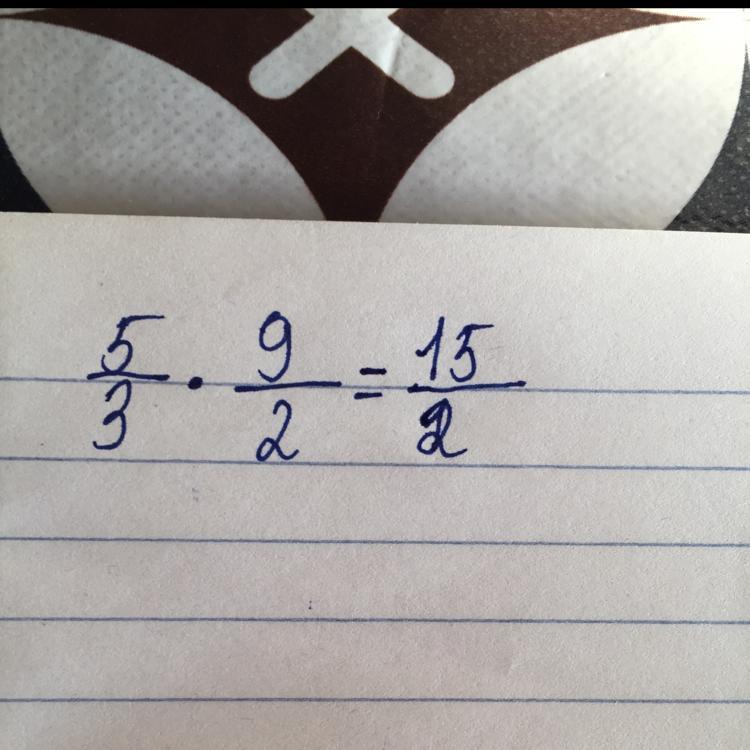 5/3 · 9/2 = 15/2